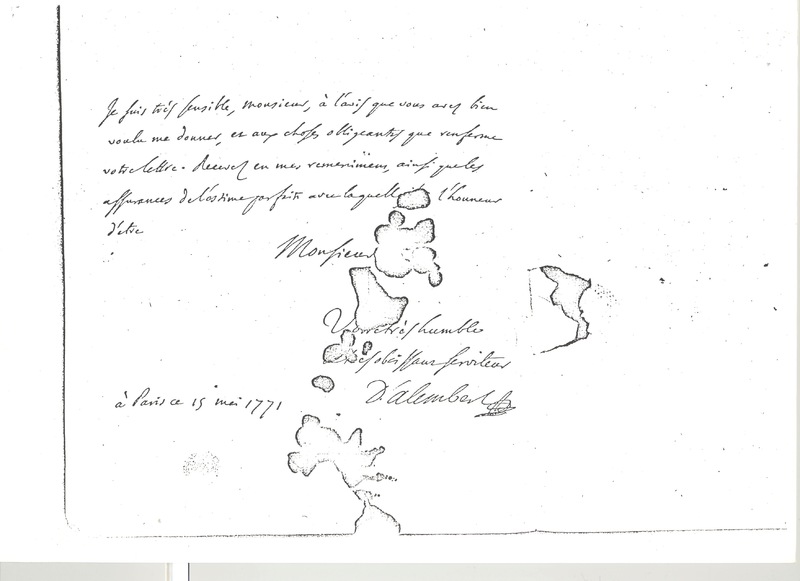 Je suis très sensible, monsieur, à l'avis que vous avez bien
voulu me donner, et aux choses obligeantes que renferme
votre lettre. Recevez en mes remercimens, ainsi que les
assurances de l'estime parfaite avec laquelle l'honneur
d'etre
Monsieur
Votre très humble
très obeissant serviteur
D'alembert
à Paris ce 15 mai 1771